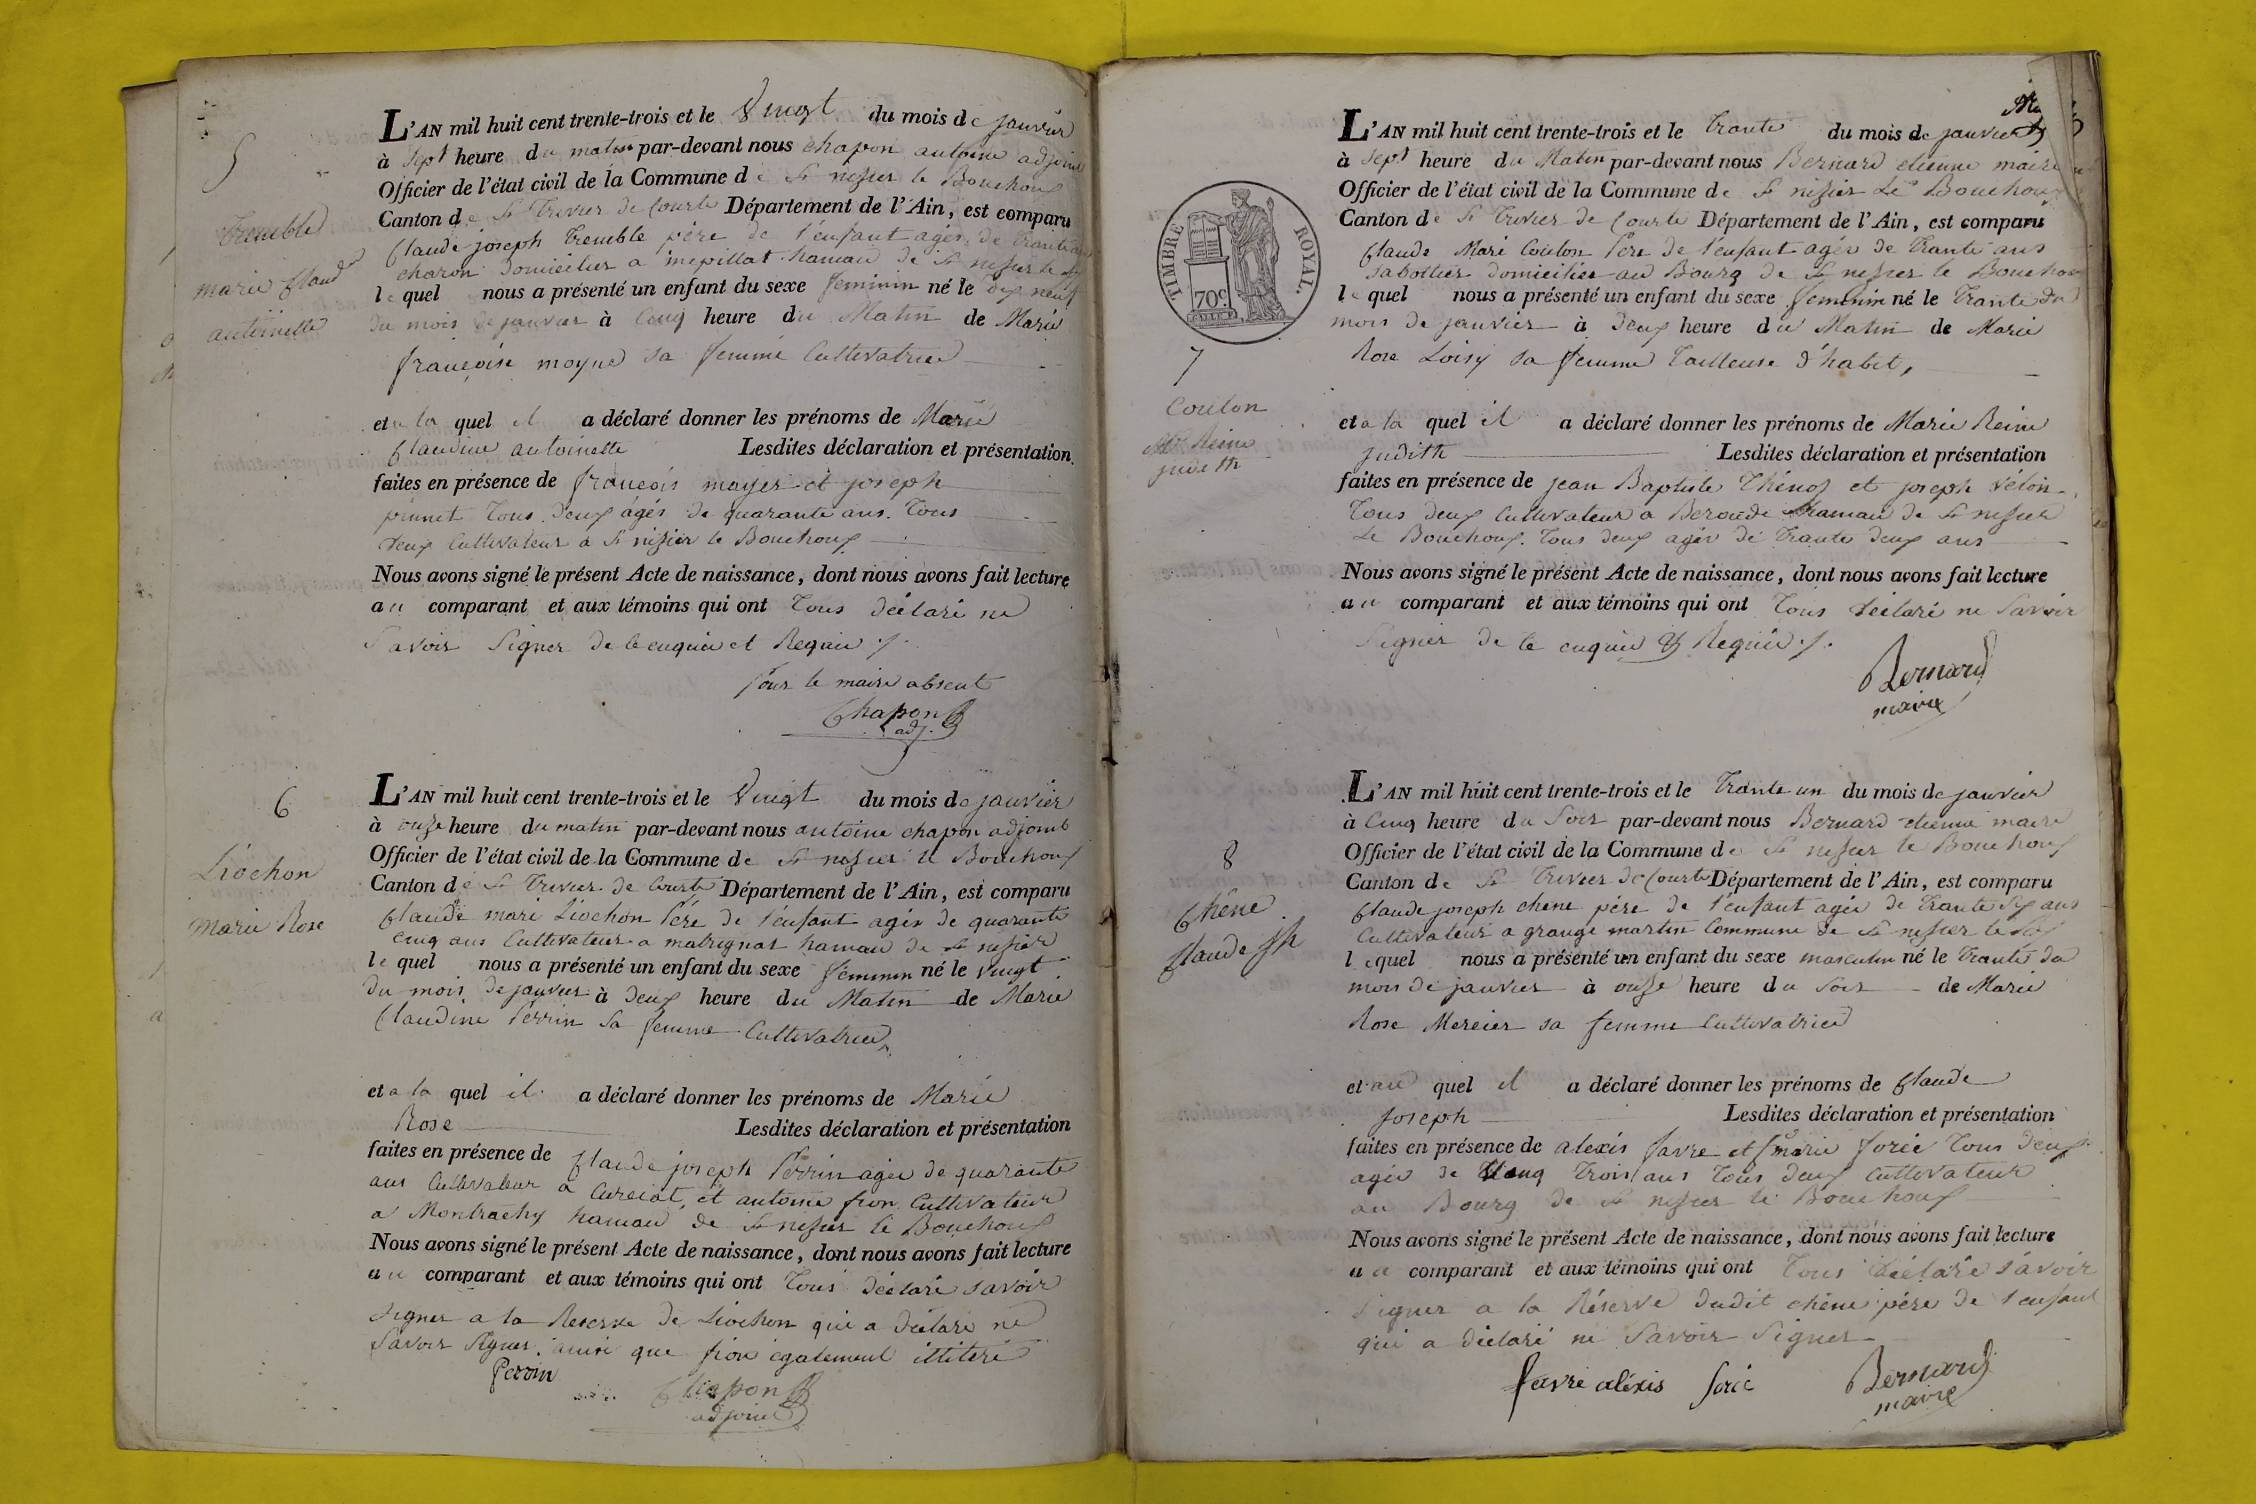 5
Tremble
marie Claud
antoinette
L'AN mil huit cent trente-trois et le Vingt du mois de janvier
à sept heure du matin par-devant nous chapon antoine adjoint
Officier de l'état civil de la Commune de St nizier le Bouchoux
Canton de St Trivier de Courte Département de l'Ain, est comparu
Claude joseph Tremble père de l'enfant agés de trante ans
charon domicilier a mepillat hamau de St nizier le
lequel nous a présenté un enfant du sexe feminin né le dix neuf
du mois de janvier à Cinq heure du Matin de Marie
françoise moyne sa femme Cultivatrice
et a la quel il a déclaré donner les prénoms de Marie
Claudine antoinette Lesdites déclaration et présentation
faites en présence de françois mayer et joseph
pinnet Tous deux ágés de quarante ans. Tous
deux Cultivateur a St nizier le Bouchoux
Nous avons signé le présent Acte de naissance, dont nous avons fait lecture
au comparant et aux témoins qui ont Tous déclaré ne
Savoir Signer de le enquie et Requie /.
Pour le maire absent
Chapon
adj.
6
Liochon
marie Rose
L'AN mil huit cent trente-trois et le Vingt du mois de janvier
à onze heure du matin par-devant nous antoine chapon adjoint
Officier de l'état civil de la Commune de St nizier le Bouchoux
Canton de St Trivier de Courte Département de l'Ain, est comparu
Claude mari Liochon Pére de l'enfant agés de quarante
cinq ans Cultivateur a malrignat hamau de St nizier
lequel nous a présenté un enfant du sexe féminin né le vingt
du mois de janvier à deux heure du Matin de Marie
Claudine Perrin sa femme Cultivatrice
et a la quel il a déclaré donner les prénoms de Marie
Rose Lesdites déclaration et présentation
faites en présence de Claude joseph Perrin agée de quarante
ans Cultivateur a Curciat, et antoine fion Cultivateur
a Montrachy hamau de St nizier le Bouchoux
Nous avons signé le présent Acte de naissance, dont nous avons fait lecture
au comparant et aux témoins qui ont Tous déclaré savoir
signer a la Reserve de Liochon qui a déclaré ne
Savoir Signer. ainsi que fion égalemeul illitéré
Perrin
Chapon
adjoint
TIMBRE ROYAL.
70c
7
Coulon
Mie Reine
judith
L'AN mil huit cent trente-trois et le trante du mois de janvier
à sept heure du Matin par-devant nous Bernard etienne maire
Officier de l'état civil de la Commune de St nizier Le Bouchoux
Canton de St Trivier de Courte Département de l'Ain, est comparu
Claude Mari Coulon Pére de l'enfant agée de trante ans
sabottier domiciliée au Bourg de St nizier le Bouchoux
lequel nous a présenté un enfant du sexe feminin né le trante du
mois de janvier à deux heure du Matin de Marie
Rose Loisy sa femme Tailleuse d'habit,
et a la quel il a déclaré donner les prénoms de Marie Reine
judith Lesdites déclaration et présentation
faites en présence de jean Baptiste Thénoz et joseph vélon
Tous deux Cultivateur a Beroude hamau de St nizier
Le Bouchoux. Tous deux agés de trante deux ans
Nous avons signé le présent Acte de naissance, dont nous avons fait lecture
au comparant et aux témoins qui ont Tous déclaré ne Savoir
Signer de le enquie & Requie /.
Bernard
maire
8
Chêne
Claude jph
L'AN mil huit cent trente-trois et le trante un du mois de janvier
à Cinq heure du Soir par-devant nous Bernard etienne maire
Officier de l'état civil de la Commune de St nizier le Bouchoux
Canton de St Trivier de Courte Département de l'Ain, est comparu
Claude joseph chene pére de l'enfant agée de trante six ans
Cultivateur a grange martin Commune de St nizier le
lequel nous a présenté un enfant du sexe masculin né le trante du
mois de janvier à onze heure du Soir de Marie
Rose Mercier sa femme Cultivatrice
et au quel il a déclaré donner les prénoms de Claude
Joseph Lesdites déclaration et présentation
faites en présence de alexis favre et marie forié Tous deux
agée de trois ans Tous deux Cultivateur
au Bourg de St nizier le Bouchoux
Nous avons signé le présent Acte de naissance, dont nous avons fait lecture
au comparant et aux témoins qui ont Tous déclaré savoir
signer a la Réserve dudit chêne pére de l'enfant
qui a diclaré ne Savoir Signer
favre aléxis forié Bernard
maire